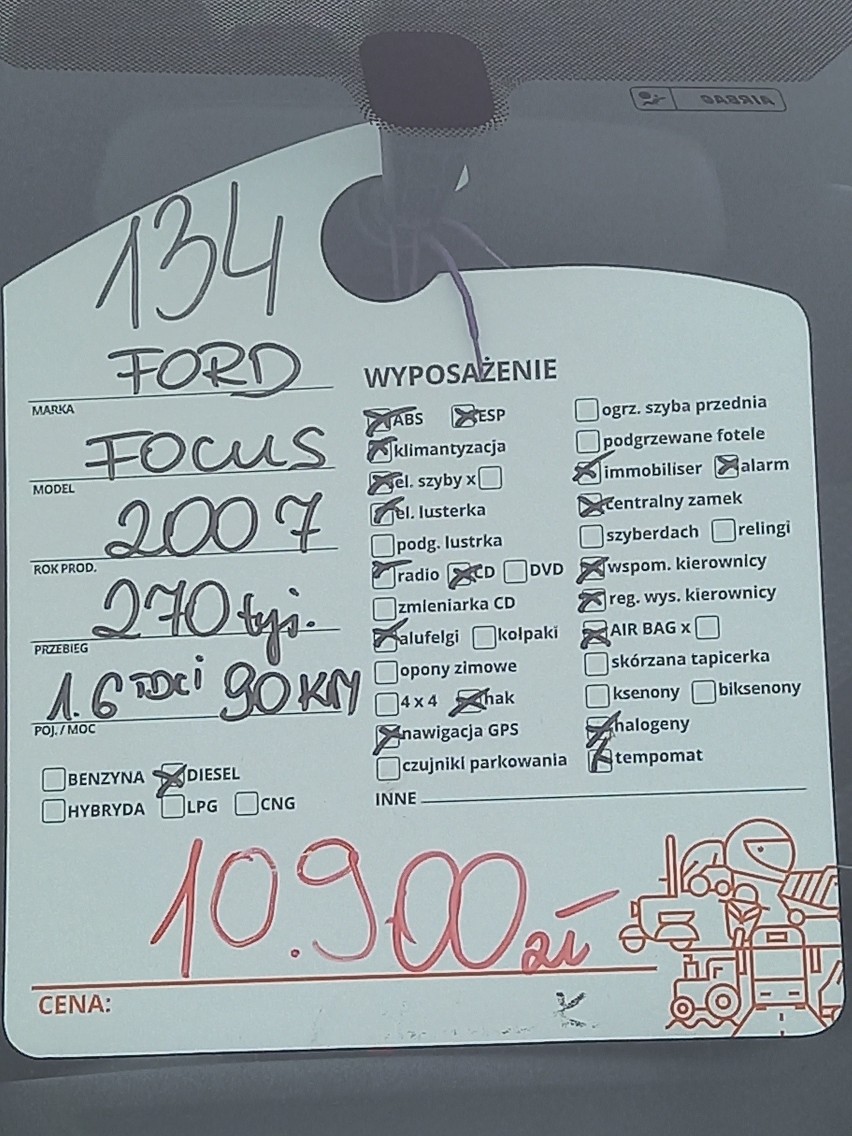 AIRBAG
134
FORD
MARKA
FOCUS
MODEL
2007
ROK PROD.
270 tyś.
PRZEBIEG
1.6 TDCi 90 KM
POJ./MOC
BENZYNA DIESEL
HYBRYDA LPG CNG
WYPOSAŻENIE
ABS ESP
klimantyzacja
el. szyby x
el. lusterka
podg. lustrka
radio CD DVD
zmleniarka CD
alufelgi kołpaki
opony zimowe
4 x 4 hak
nawigacja GPS
czujniki parkowania
ogrz. szyba przednia
podgrzewane fotele
immobiliser alarm
centralny zamek
szyberdach relingi
wspom. kierownicy
reg. wys. kierownicy
AIR BAG x
skórzana tapicerka
ksenony biksenony
halogeny
tempomat
INNE
10.900 zł
CENA: